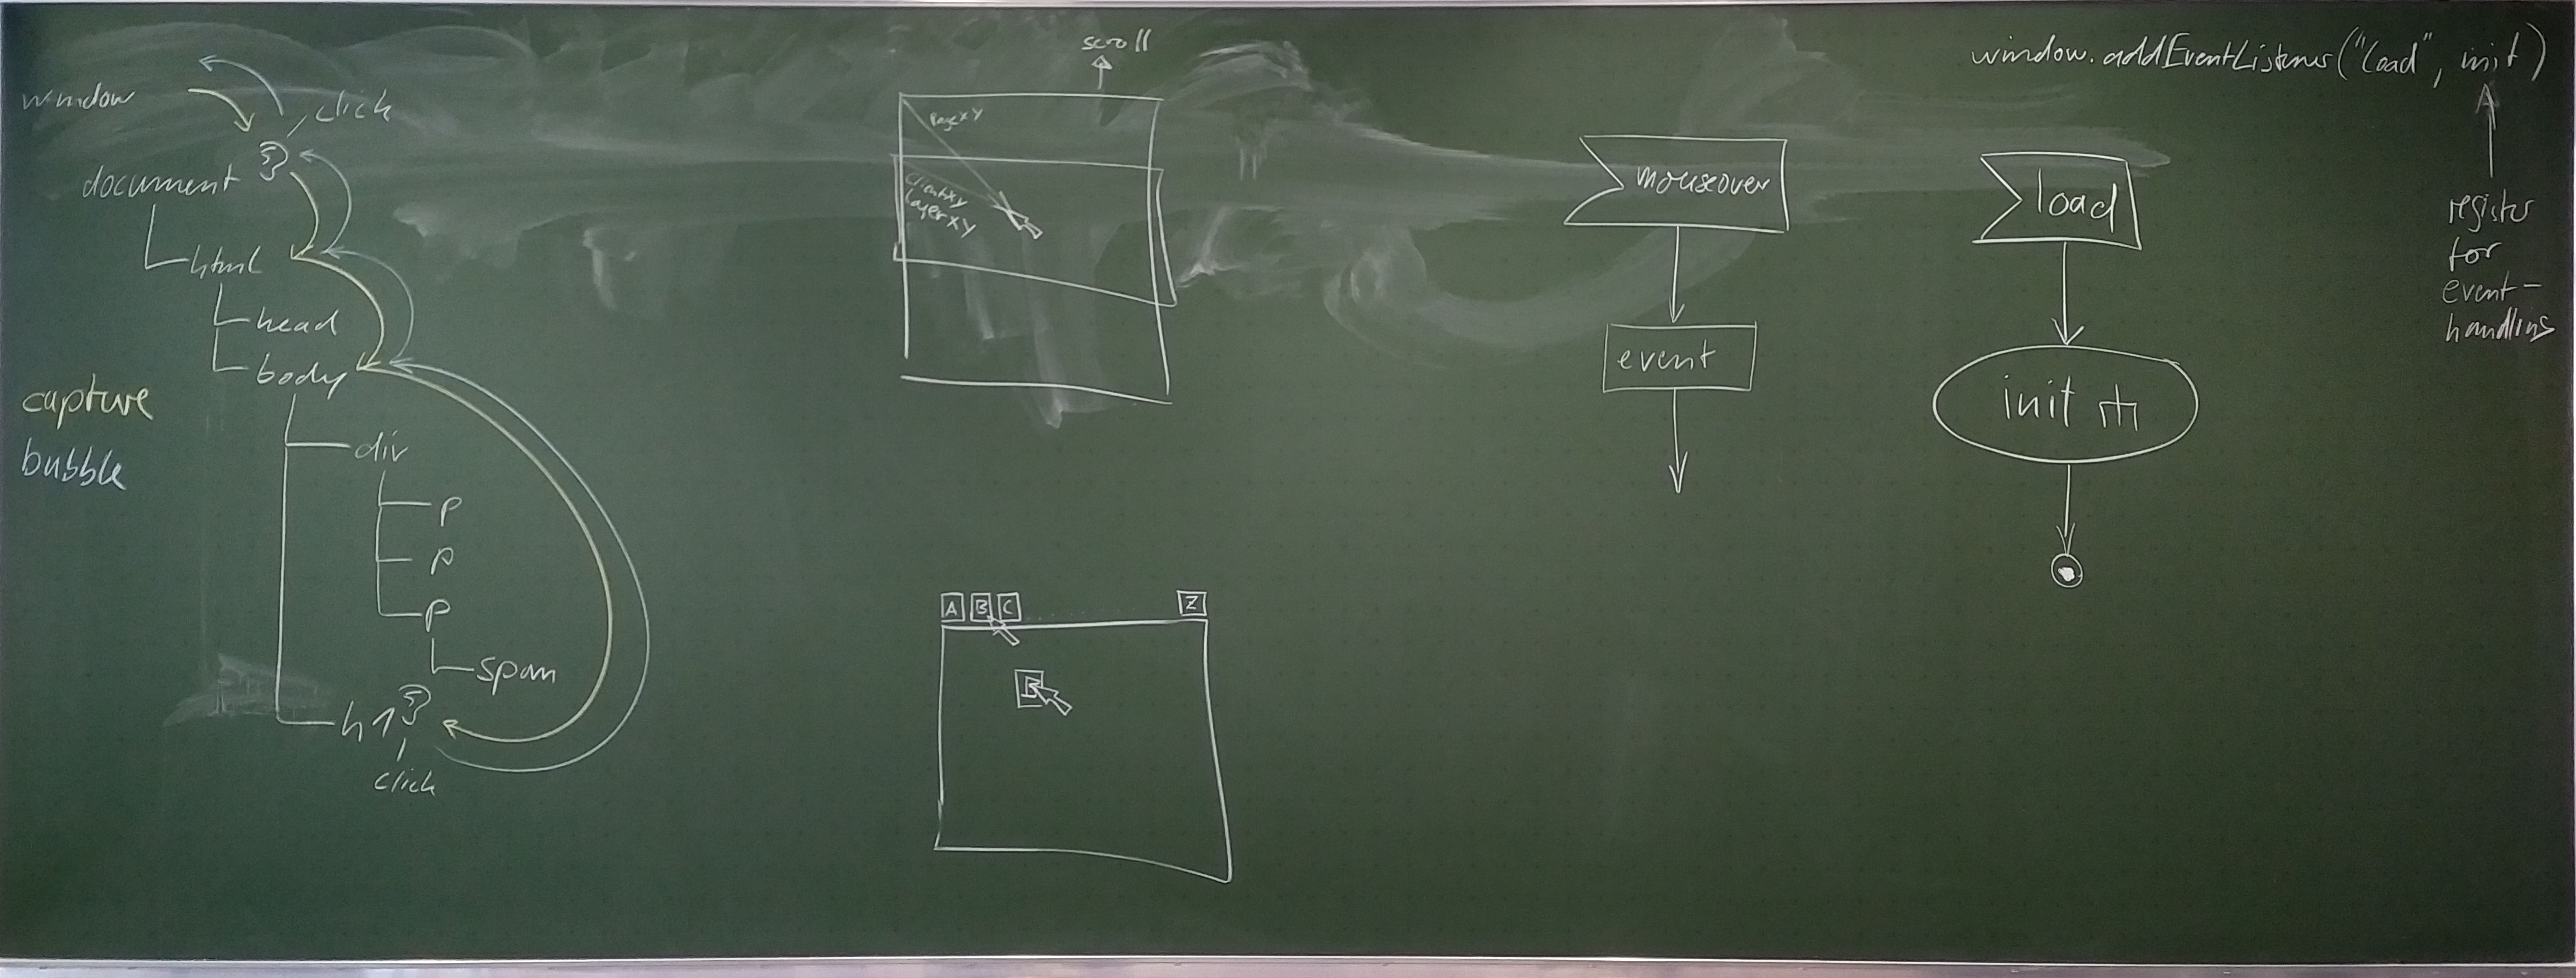 window
click
document
html
head
body
capture
bubble
div
p
p
p
span
h1
click
scroll
Page XY
Client XY
Layer XY
A B C Z
B
mouseover
event
window.addEventListener("load", init)
load
init
register
for
event-
handling